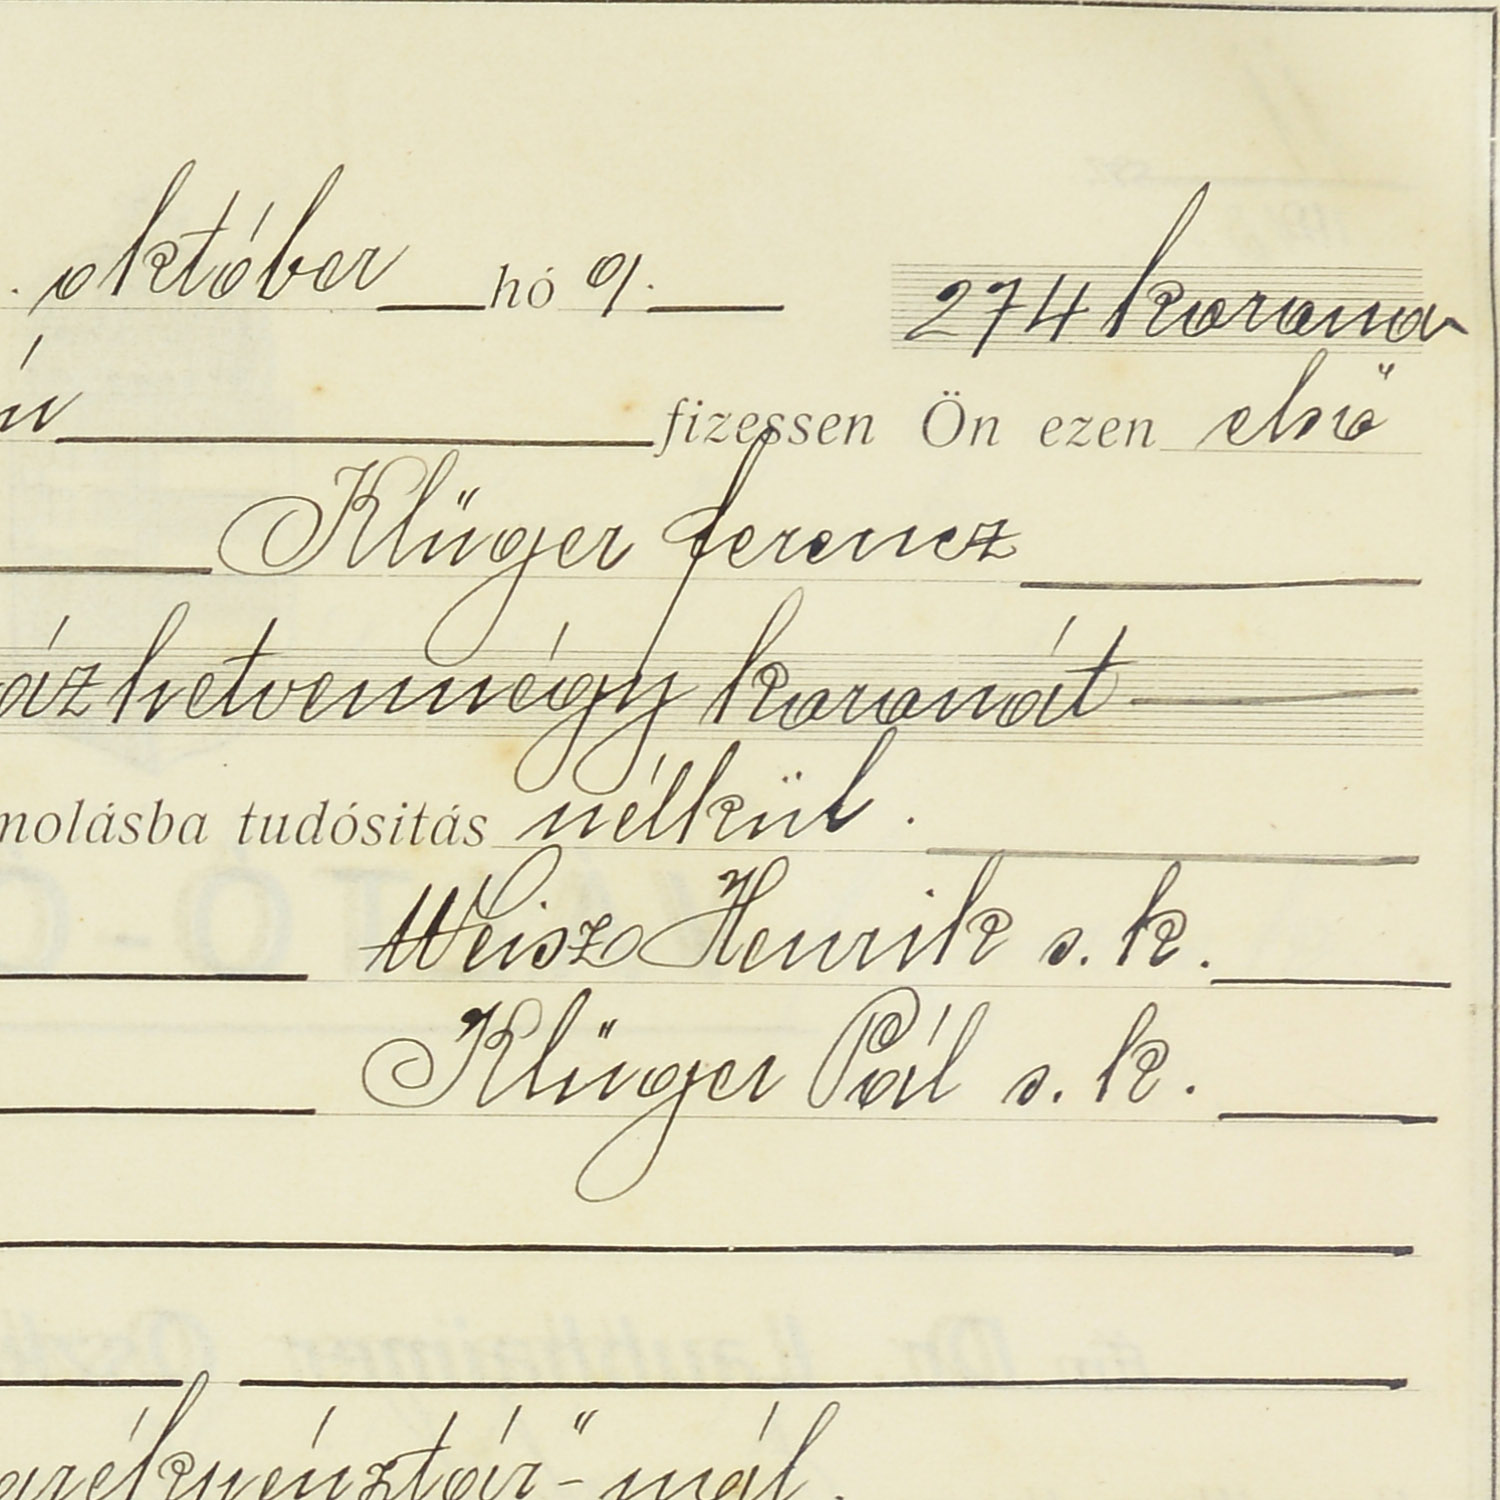 . október hó 9.
274 korona
fizessen Ön ezen első
Klüger Ferencz
áz hetvennégy koronát
molásba tudósitás nélkül.
Weisz Henrik s. k.
Klüger Pál s. k.
arékpénztár"-nál.